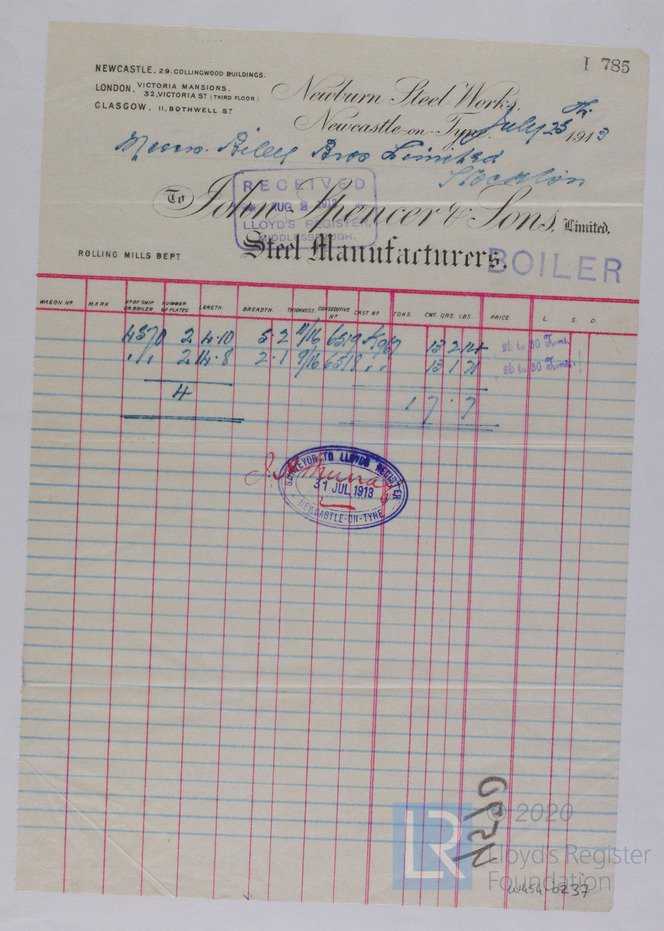 I 785
NEWCASTLE, 29, COLLINGWOOD BUILDINGS.
LONDON, VICTORIA MANSIONS,
32, VICTORIA ST (THIRD FLOOR)
GLASGOW, 11, BOTHWELL ST
Newburn Steel Works,
Newcastle-on-Tyne, July 25th 1913
Messrs. Riley Bros Limited
Stockton
RECEIVED
AUG 2 1913
LLOYD'S REGISTER,
MIDDLESBROUGH.
To John Spencer & Sons, Limited.
Steel Manufacturers,
BOILER
ROLLING MILLS DEPT
WAGON No MARK No OF SHIP OR BOILER NUMBER OF PLATES LENGTH. BREADTH. THICKNESS. CONSECUTIVE No CAST No TONS. CWT. QRS. LBS. PRICE. L. S. D.
4370 2 4.10 5.2 11/16 6519 13 2 14 26 to 30 Tons.
" " 2 14.8 2.1 9/16 6518 " " 13 1 21 26 to 30 Tons.
4 1 7. . 7
SURVEYOR TO LLOYD'S REGISTER
31 JUL 1913
NEWCASTLE-ON-TYNE
LR
© 2020
Lloyd's Register
Foundation
W454-0237